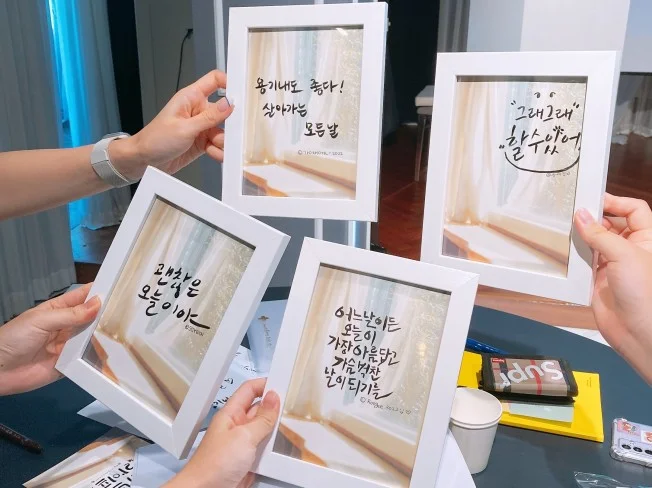 용기내도 좋다!
살아가는
모든날
"그래그래"
"할수있어
괜찮은
오늘이야
어느날이든
오늘이
가장 아름답고
가슴벅찬
날이 되기를
Sup